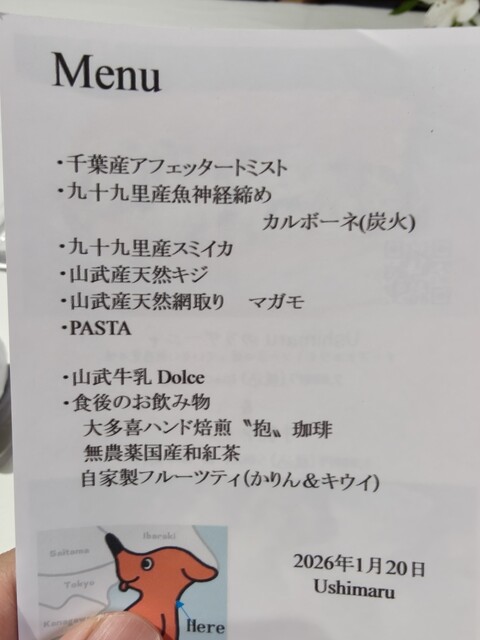 Menu
・千葉産アフェッタートミスト
・九十九里産魚神経締め
カルボーネ(炭火)
・九十九里産スミイカ
・山武産天然キジ
・山武産天然網取り　マガモ
・PASTA
・山武牛乳 Dolce
・食後のお飲み物
大多喜ハンド焙煎〝抱〟珈琲
無農薬国産和紅茶
自家製フルーツティ(かりん＆キウイ)
Ibaraki
Saitama
Tokyo
Here
2026年1月20日
Ushimaru